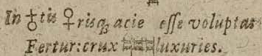 In ♁tis ♀risq; acie esse voluptas
Fertur: crux luxuries.